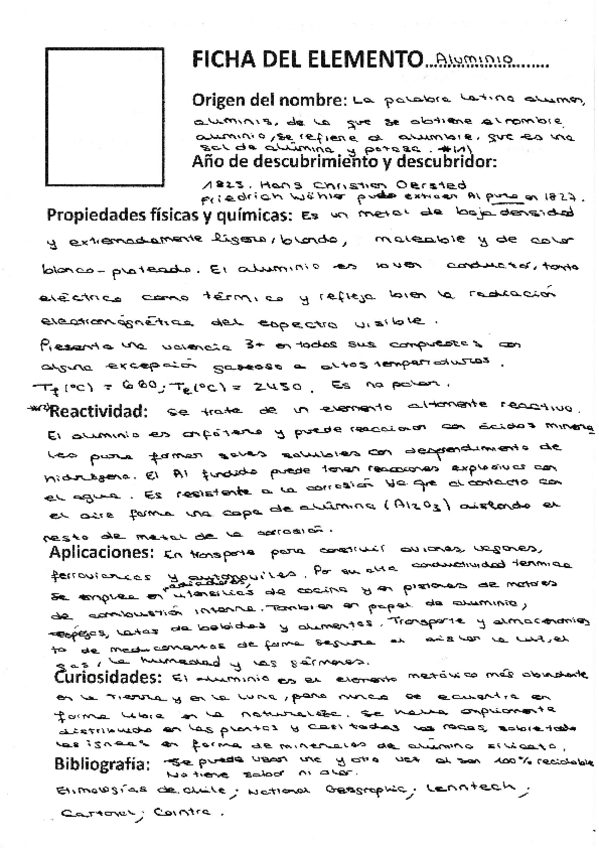 FICHA DEL ELEMENTO Aluminio
Origen del nombre: La palabra latina alumen,
aluminis, de la que se obtiene el nombre
aluminio, se refiere al alumbre, que es una
sal de alúmina y potasa. #(1)
Año de descubrimiento y descubridor:
1825. Hans Christian Oersted
Friedrich Wöhler pudo extraer Al puro en 1827.
Propiedades físicas y químicas: Es un metal de baja densidad
y extremadamente ligero, blando, maleable y de color
blanco-plateado. El aluminio es buen conductor, tanto
eléctrico como térmico y refleja bien la radiación
electromagnética del espectro visible.
Presenta una valencia 3+ en todos sus compuestos con
alguna excepción gaseoso a altas temperaturas.
Tf (ºC) = 660; Te (ºC) = 2450. Es no polar.
Reactividad: Se trata de un elemento altamente reactivo.
El aluminio es anfótero y puede reaccionar con ácidos minera
les para formar sales solubles con desprendimiento de
hidrógeno. El Al fundido puede tener reacciones explosivas con
el agua. Es resistente a la corrosión ya que al contacto con
el aire forma una capa de alúmina (Al2O3) aislando el
resto de metal de la corrosión.
Aplicaciones: En transporte para construir aviones, vagones,
ferroviarios y automóviles. Por su alta conductividad térmica
radiadores,
se emplea en utensilios de cocina y en pistones de motores
de combustión interna. También en papel de aluminio,
espejos, latas de bebidas y alimentos. Transporte y almacenamien
to de medicamentos de forma segura al aislar la luz, el
gas, la humedad y los gérmenes.
Curiosidades: El aluminio es el elemento metálico más abundante
en la Tierra y en la Luna, pero nunca se ecuentra en
forma libre en la naturaleza. Se halla ampliamente
distribuido en las plantas y casi todas las rocas, sobre todo
las ígneas en forma de minerales de alumino silicato.
Se puede usar una y otra vez al ser 100% reciclable
No tiene sabor ni olor.
Bibliografía:
Etimologías de Chile; National Geographic; Lenntech;